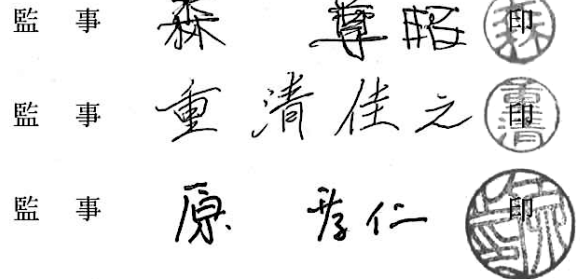 監 事 森 尊昭 印
監 事 重清佳之 印
監 事 原 孝仁 印